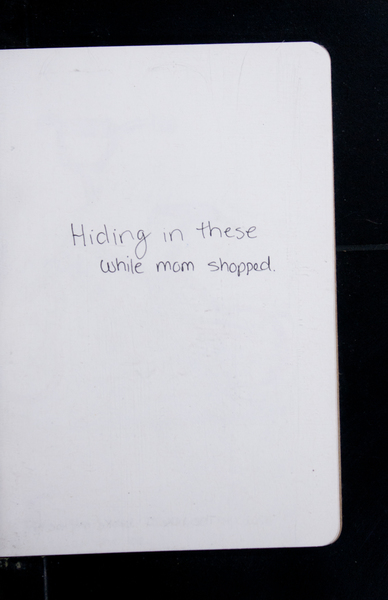 Hiding in these
while mom shopped.